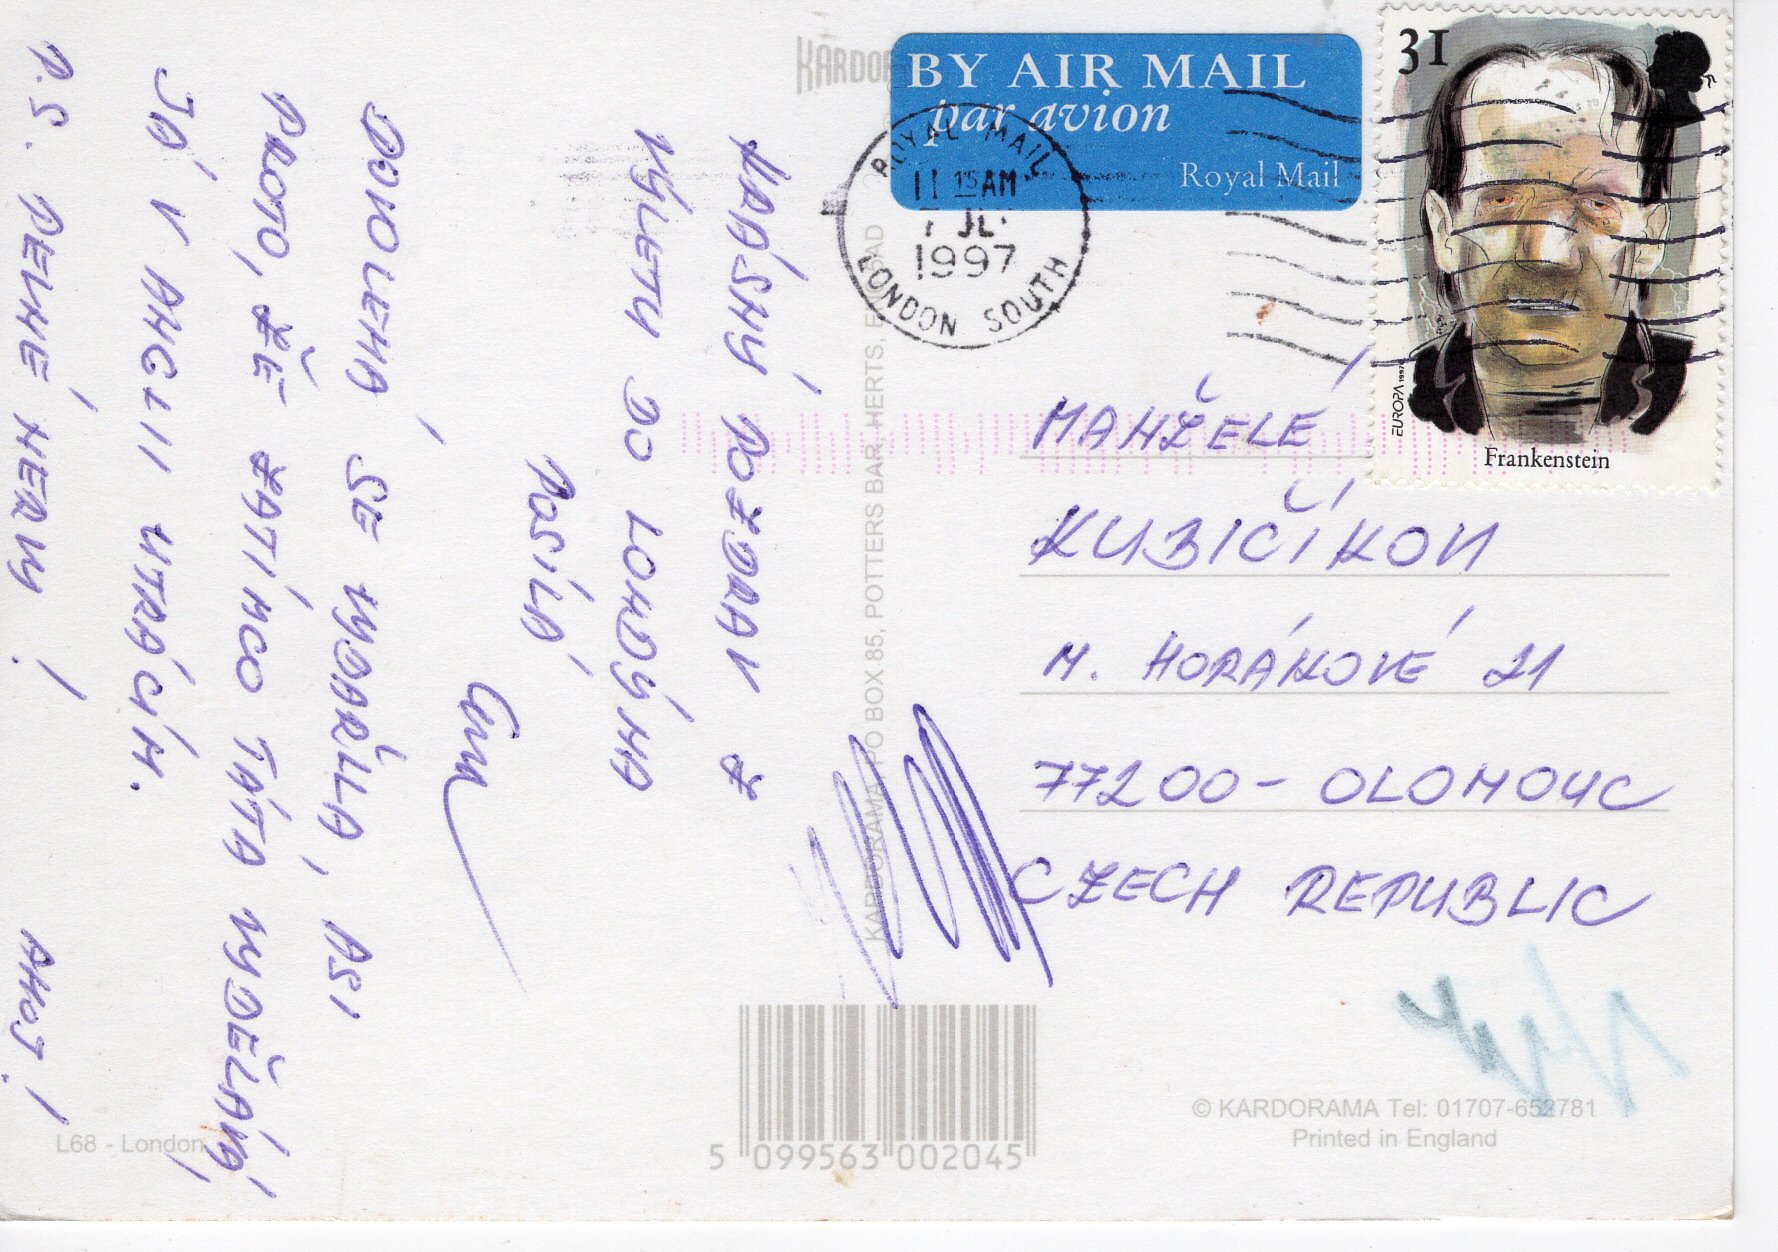 KRÁSNÝ POZDRAV Z
VÝLETU DO LONDÝNA
POSÍLÁ
DOVOLENÁ SE VYDAŘILA, ASI
PROTO, ŽE ZATÍMCO TÁTA VYDĚLÁVÁ,
JÁ V ANGLII UTRÁCÍM.
P.S. PEVNÉ NERVY! AHOJ!
L68 - London
KARDORAMA, PO BOX 85, POTTERS BAR, HERTS,
BY AIR MAIL
par avion
Royal Mail
ROYAL MAIL
11 15 AM
JL
1997
LONDON SOUTH
31
EUROPA 1997
Frankenstein
MANŽELÉ
KUBIČÍKOVI
M. HORÁKOVÉ 21
77200 - OLOMOUC
CZECH REPUBLIC
5 099563 002045
© KARDORAMA Tel: 01707-652781
Printed in England